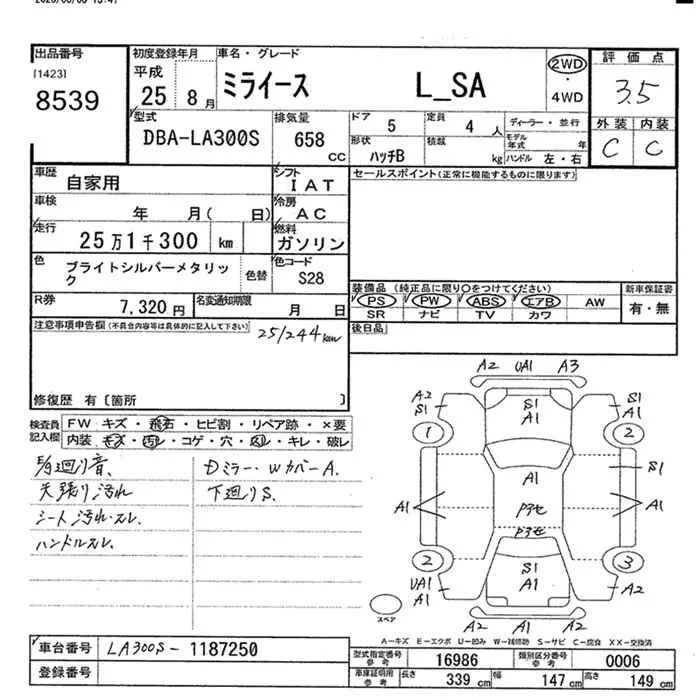 出品番号
[1423]
8539
初度登録年月
平成
25 8月
車名・グレード
ミライース L_SA
2WD
・
4WD
評価点
3.5
外装 内装
C C
型式
DBA-LA300S
排気量
658
CC
ドア 5
定員 4 人
形状
ハッチB
積載
kg
ディーラー・並行
モデル年式 年
ハンドル 左・右
車歴
自家用
シフト
IAT
セールスポイント(正常に機能するものに限ります)
車検
年 月( 日)
冷房
AC
走行
25万1千300 km
燃料
ガソリン
色
ブライトシルバーメタリック
色替
色コード
S28
装備品 (純正品に限り○をつけてください)
PS PW ABS エアB AW
SR ナビ TV カワ
新車保証書
有・無
R券
7,320円
名変通知期限
月 日
後日品
注意事項申告欄(不具合内容等は具体的に記入して下さい)
25/244km
修復歴 有〔箇所 〕
検査員記入欄
FW キズ・飛石・ヒビ割・リペア跡・×要
内装 キズ・汚レ・コゲ・穴・スレ・キレ・破レ
天張り汚れ
シート汚れ・スレ
ハンドルスレ
Dミラー・WカバーA.
下廻りS.
A2 UA1 A3
A2
S1
S1
A1
S1
A1
1
2
A1
S1
A1
A1
2
3
UA1
A1
S1
A1
A2
A2 A1 A2
スペア
A−キズ E−エクボ U−凹み W−補修跡 S−サビ C−腐食 XX−交換済
車台番号
LA300S-1187250
登録番号
型式指定番号
参考
16986
類別区分番号
参考
0006
車庫証明用
参考
長さ 339 cm 幅 147 cm 高さ 149 cm